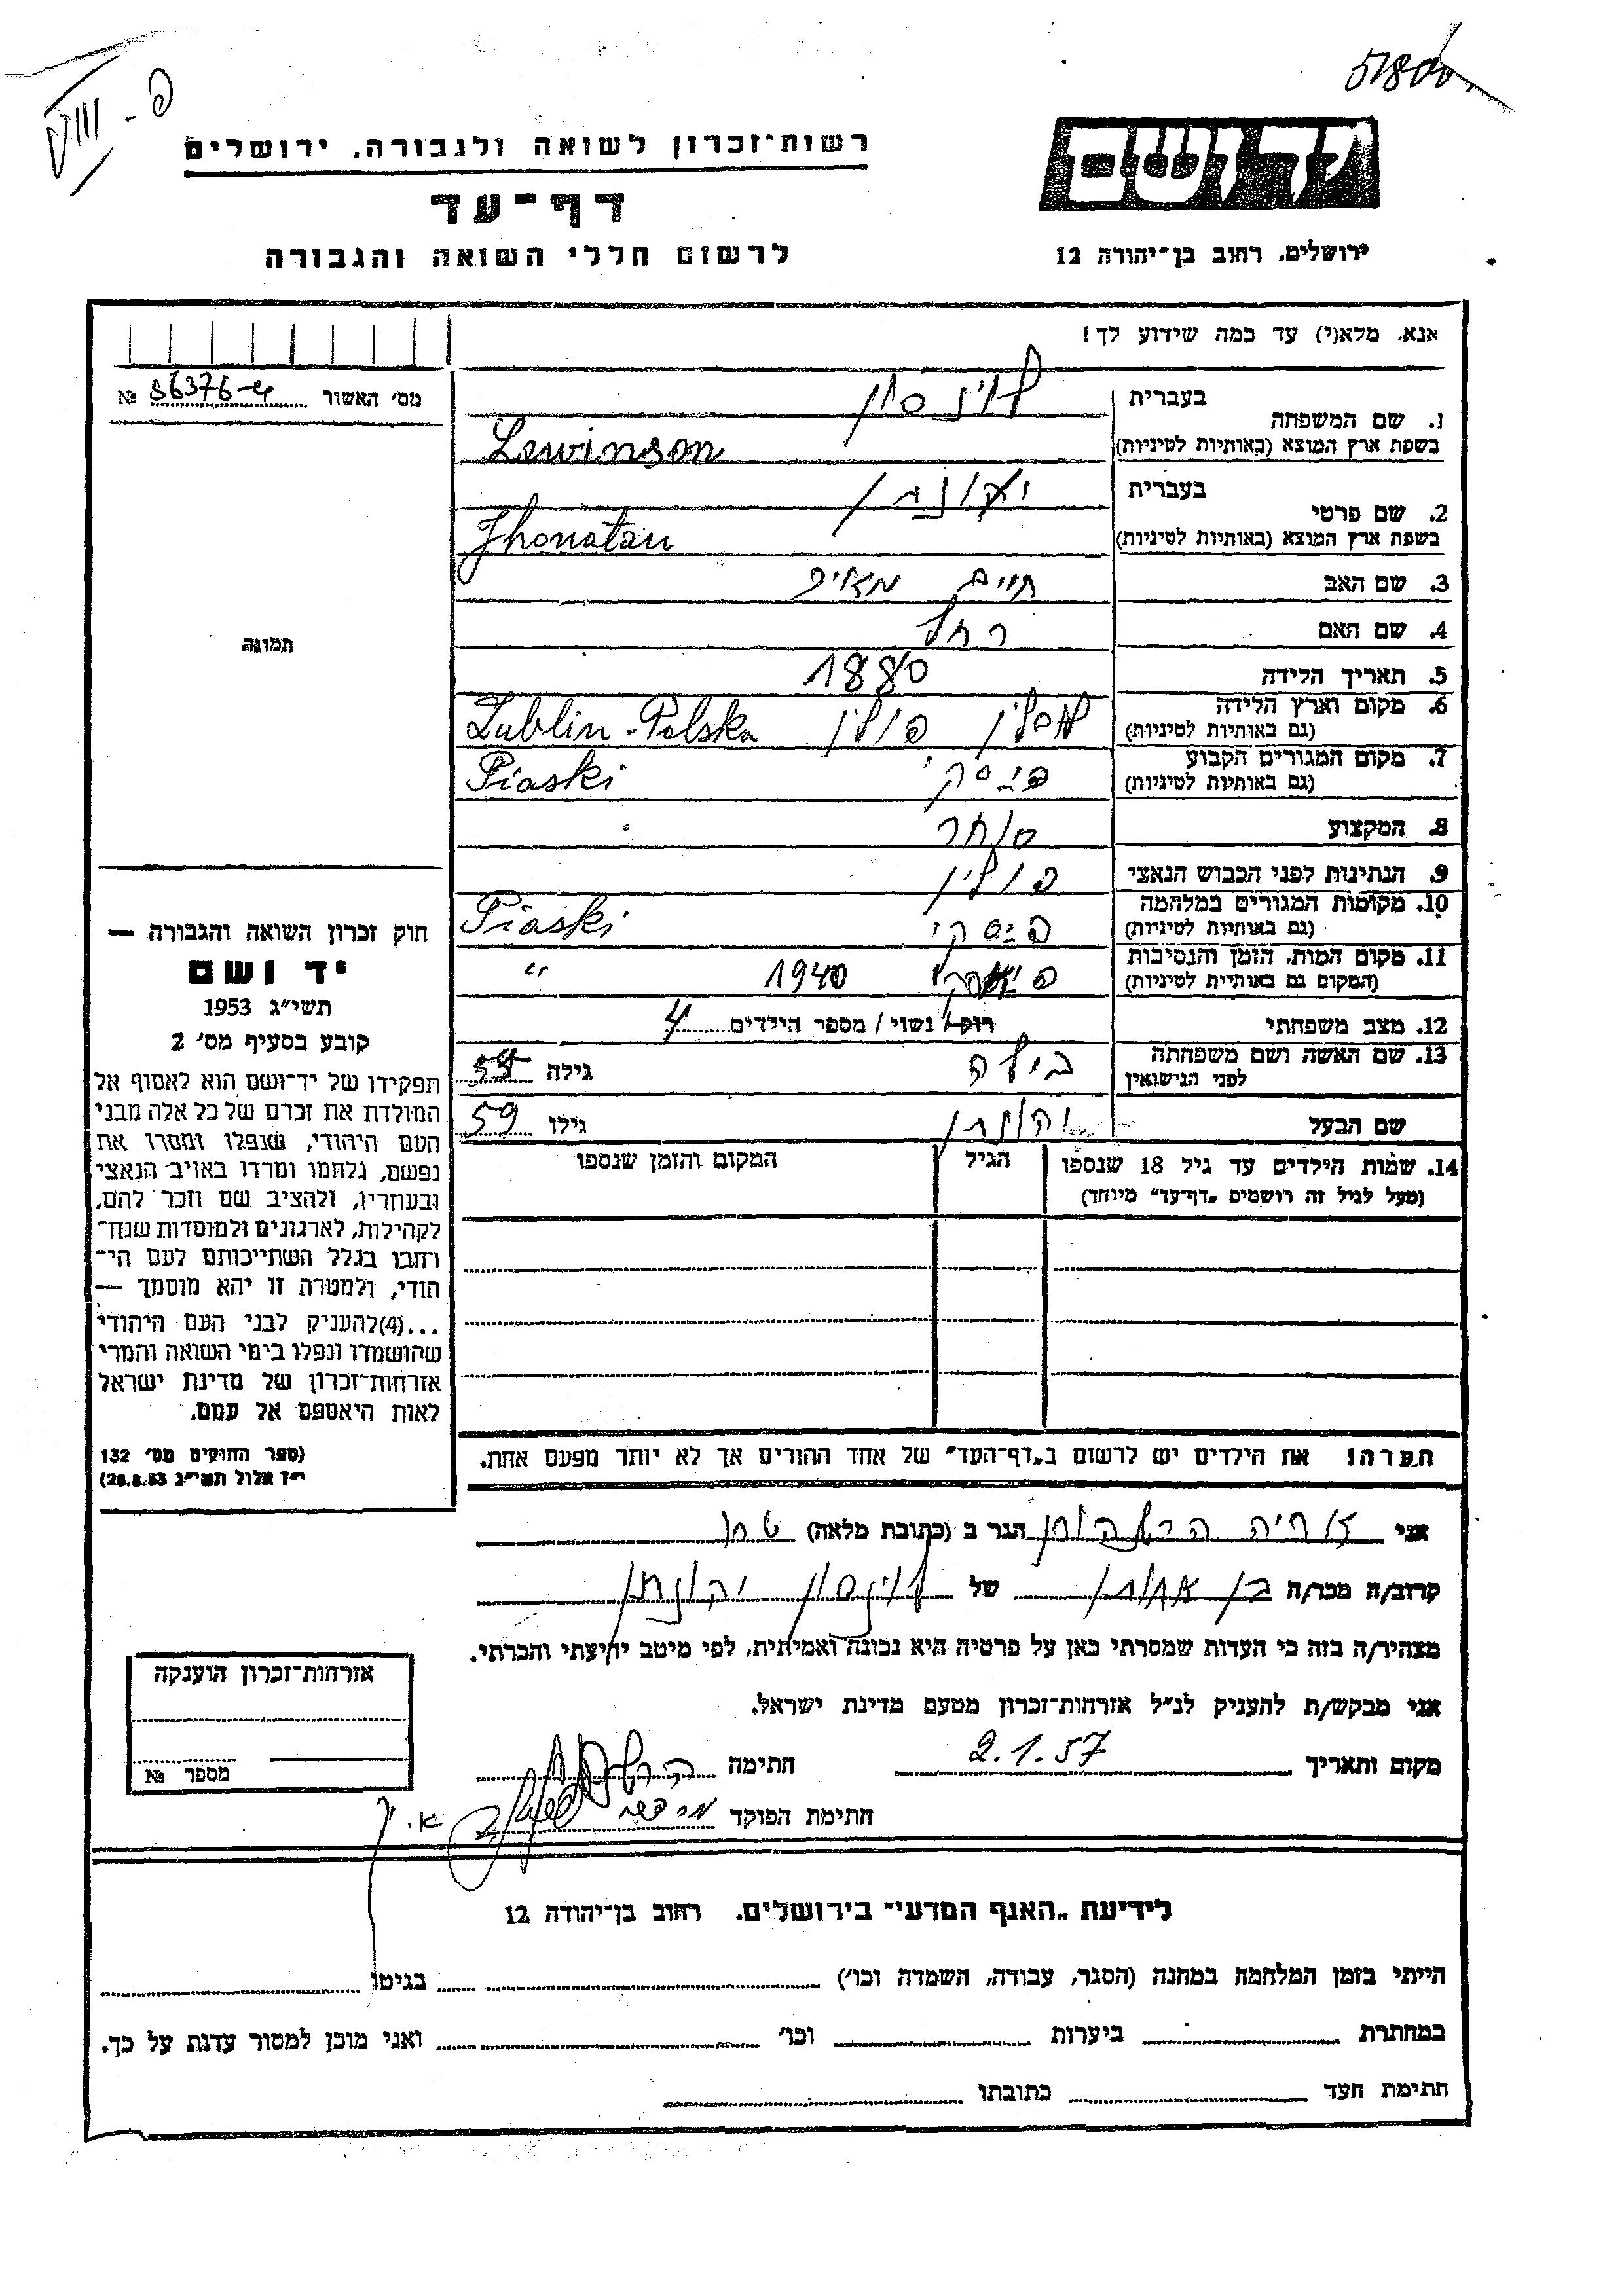 51800
VIII - פ
רשות־זכרון לשואה ולגבורה. ירושלים
דף־עד
לרשום חללי השואה והגבורה
יד ושם
ירושלים, רחוב בן־יהודה 12
אנא. מלא(י) עד כמה שידוע לך!
מס׳ האשור № 36376
1. שם המשפחה בעברית לוינסון
בשפת ארץ המוצא (באותיות לטיניות) Lewinson
2. שם פרטי בעברית יהונתן
בשפת ארץ המוצא (באותיות לטיניות) Jhonatan
3. שם האב חיים מאיר
4. שם האם רחל
5. תאריך הלידה 1880
6. מקום וארץ הלידה לובלין פולין Lublin - Polska
(גם באותיות לטיניות)
7. מקום המגורים הקבוע פיסקי Piaski
(גם באותיות לטיניות)
8. המקצוע סוחר
9. הנתינות לפני הכבוש הנאצי פולין
10. מקומות המגורים במלחמה פיסקי Piaski
(גם באותיות לטיניות)
11. מקום המות. הזמן והנסיבות 1940 "
(המקום גם באותיית לטיניות)
12. מצב משפחתי רוק/נשוי/מספר הילדים 4
13. שם האשה ושם משפחתה בילה גילה
לפני הנישואין
שם הבעל יהונתן גילו 59
14. שמות הילדים עד גיל 18 שנספו הגיל המקום והזמן שנספו
(מעל לגיל זה רושמים „דף־עד״ מיוחד)
הערה! את הילדים יש לרשום ב„דף־העד״ של אחד ההורים אך לא יותר מפעם אחת.
תמונה
חוק זכרון השואה והגבורה —
יד ושם
תשי״ג 1953
קובע בסעיף מס׳ 2
תפקידו של יד־ושם הוא לאסוף אל
המולדת את זכרם של כל אלה מבני
העם היהודי, שנפלו ומסרו את
נפשם, נלחמו ומרדו באויב הנאצי
ובעוזריו, ולהציב שם וזכר להם,
לקהילות, לארגונים ולמוסדות שנח־
רחבו בגלל השתייכותם לעם הי־
הודי, ולמטרה זו יהא מוסמך —
...(4)להעניק לבני העם היהודי
שהושמדו ונפלו בימי השואה והמרי
אזרחות־זכרון של מדינת ישראל
לאות היאספם אל עמם.
(ספר החוקים מס׳ 132
י״ז אלול תשי״ג 28.8.53)
אני הגר ב (כתובת מלאה)
קרוב/ה מכר/ה בן אחותו של לוינסון יהונתן
מצהיר/ה בזה כי העדות שמסרתי כאן על פרטיה היא נכונה ואמיתית, לפי מיטב ידיעתי והכרתי.
אני מבקש/ת להעניק לנ״ל אזרחות־זכרון מטעם מדינת ישראל.
מקום ותאריך 2.1.57 חתימה
חתימת הפוקד
אזרחות־זכרון הוענקה
מספר №
לידיעת „האגף המדעי״ בירושלים. רחוב בן־יהודה 12
הייתי בזמן המלחמה במחנה (הסגר, עבודה, השמדה וכו׳) בגיטו
במחתרת ביערות וכו׳ ואני מוכן למסור עדות על כך.
חתימת העד כתובתו